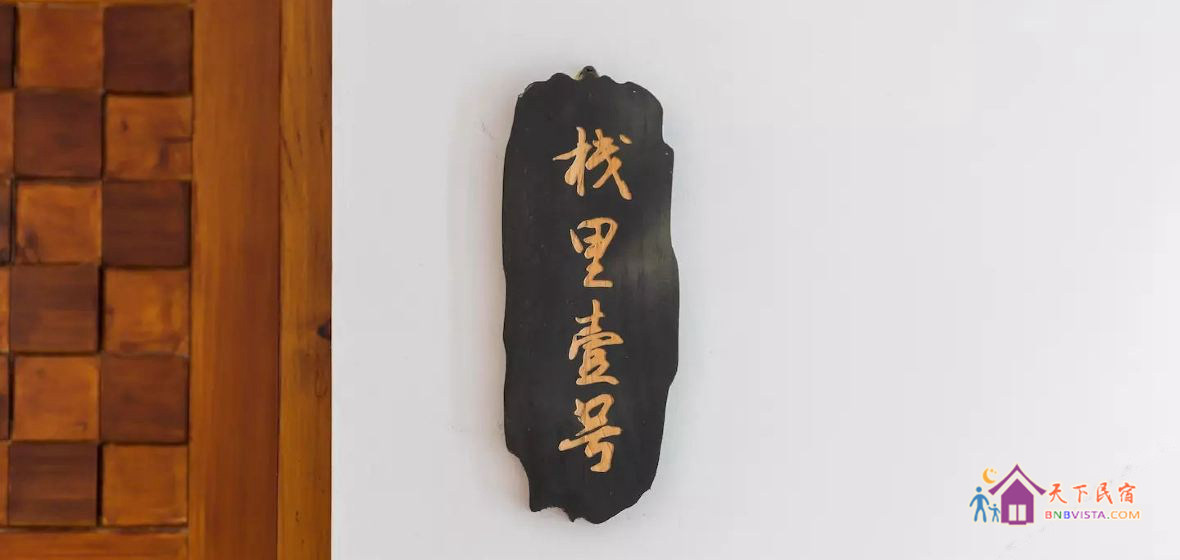 栈里壹号
天下民宿
BNBVISTA.COM